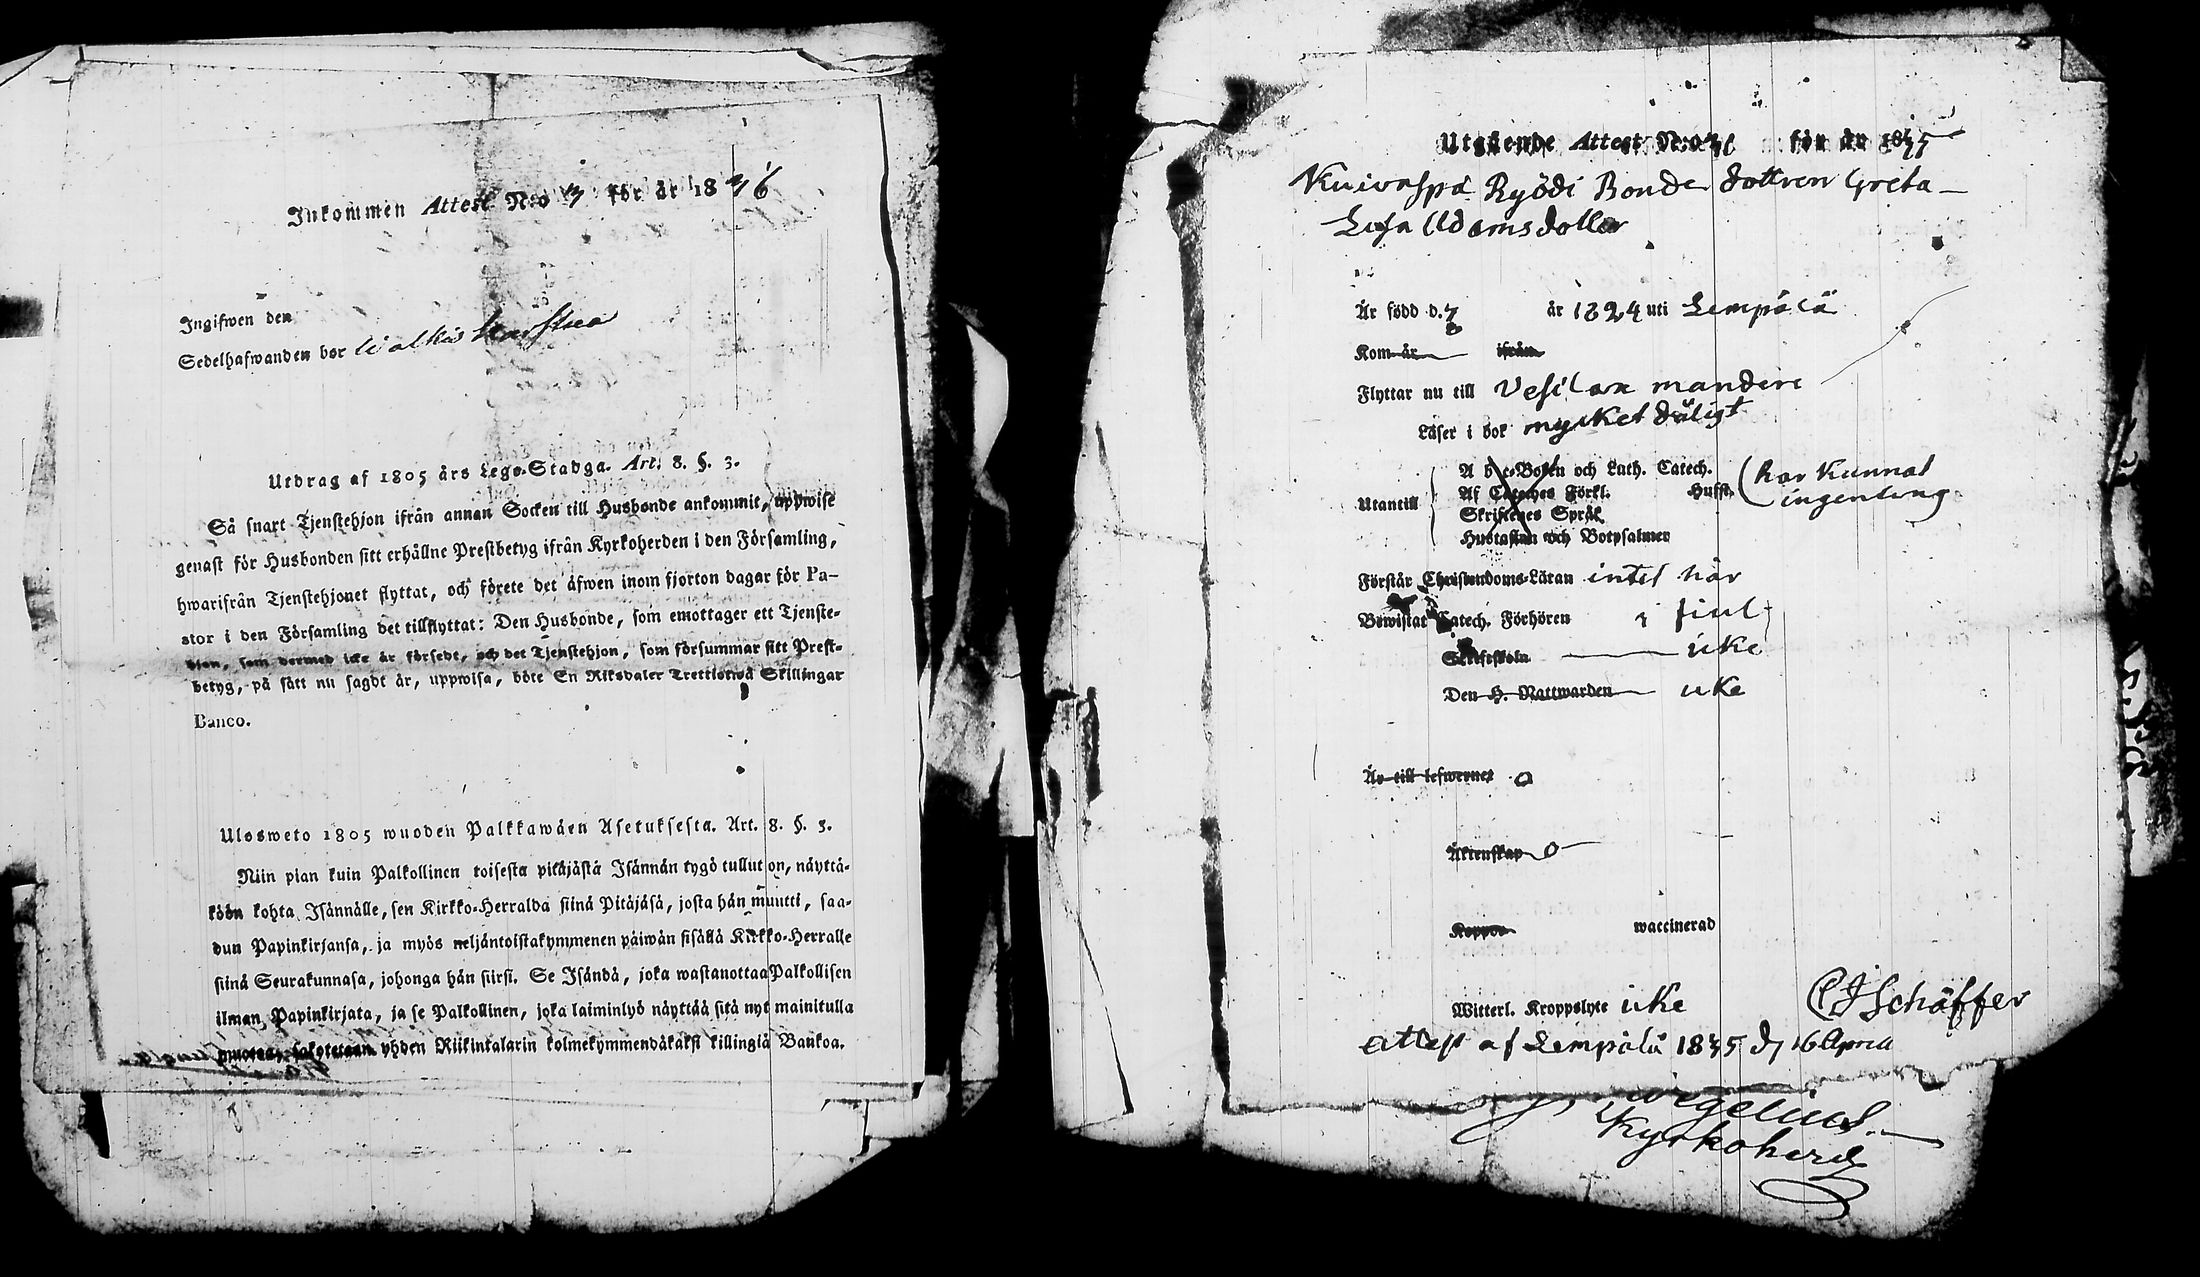 Inkommen Attest N:o 3 för år 1836
Ingifwen den
Sedelhafwanden bor Walkis
Utdrag af 1805 års Lego-Stadga. Art. 8. §. 3.
Så snart Tjenstehjon ifrån annan Socken till Husbonde ankommit, uppwise
genast för Husbonden sitt erhållne Prestbetyg ifrån Kyrkoherden i den Församling,
hwarifrån Tjenstehjonet flyttat, och förete det äfwen inom fjorton dagar för Pa-
stor i den Församling det tillflyttat: Den Husbonde, som emottager ett Tjenste-
hjon, som dermed icke är försedt, och det Tjenstehjon, som försummar sitt Prest-
betyg, på sätt nu sagdt är, uppwisa, böte En Riksdaler Trettiotwå Skillingar
Banco.
Ulosweto 1805 wuoden Palkkawäen Asetuksesta. Art. 8. §. 3.
Niin pian kuin Palkollinen toisesta pitäjästä Isännän tygö tullut on, näyttä-
köön kohta Isännälle, sen Kirkko-Herralda siinä Pitäjäsä, josta hän muutti, saa-
dun Papinkirjansa, ja myös neljäntoistakymmenen päiwän sisällä Kirkko-Herralle
siinä Seurakunnasa, johonga hän siirsi. Se Isändä, joka wastanottaa Palkollisen
ilman Papinkirjata, ja se Palkollinen, joka laiminlyö näyttää sitä nyt mainitulla
muotoa, sakotetaan yhden Riikintalarin kolmekymmendäkaksi killingiä Bankoa.
Utgående Attest N:o 31 för år 1835
Kuivaspä Ryödi Bonde dottren Greta
Lisa Adamsdotter
Är född d. 7 år 1824 uti Lempälä
Kom år ifrån
Flyttar nu till Vesilax
Läser i bok mycket dåligt
Utantill
A b c-Boken och Luth. Catech.
Af Cateches Förkl. Hufst.
Skriftenes Språk
Hustaflan och Botpsalmer
har kunnat
ingenting
Förstår Christendoms-Läran intet här
Bewistat Catech. Förhören
Skriftskoln icke
Den H. Nattwarden icke
Är till lefwernet o
Äktenskap o
Koppor waccinerad
Witterl. Kroppslyte icke
CJ Schäffer
Attest af Lempälä 1835 d. 16 April
Wegelius
Kyrkoherd